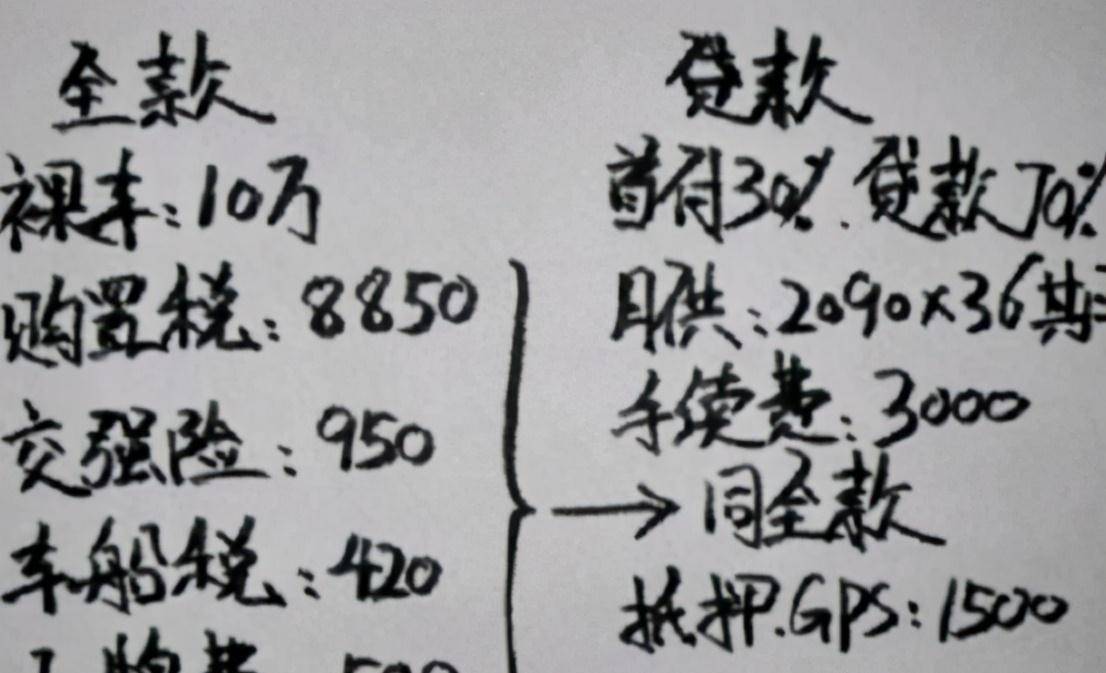 全款
裸车:10万
购置税:8850
交强险:950
车船税:420
贷款
首付30%.贷款70%
月供:2090×36共=
手续费:3000
→同全款
抵押.GPS:1500